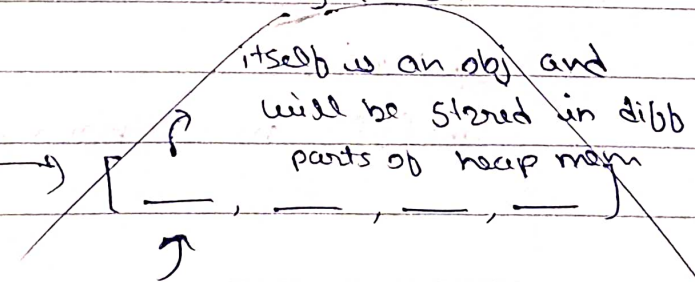 itself is an obj and
will be stored in diff
parts of heap mem
[ __ , __ , __ , __ ]